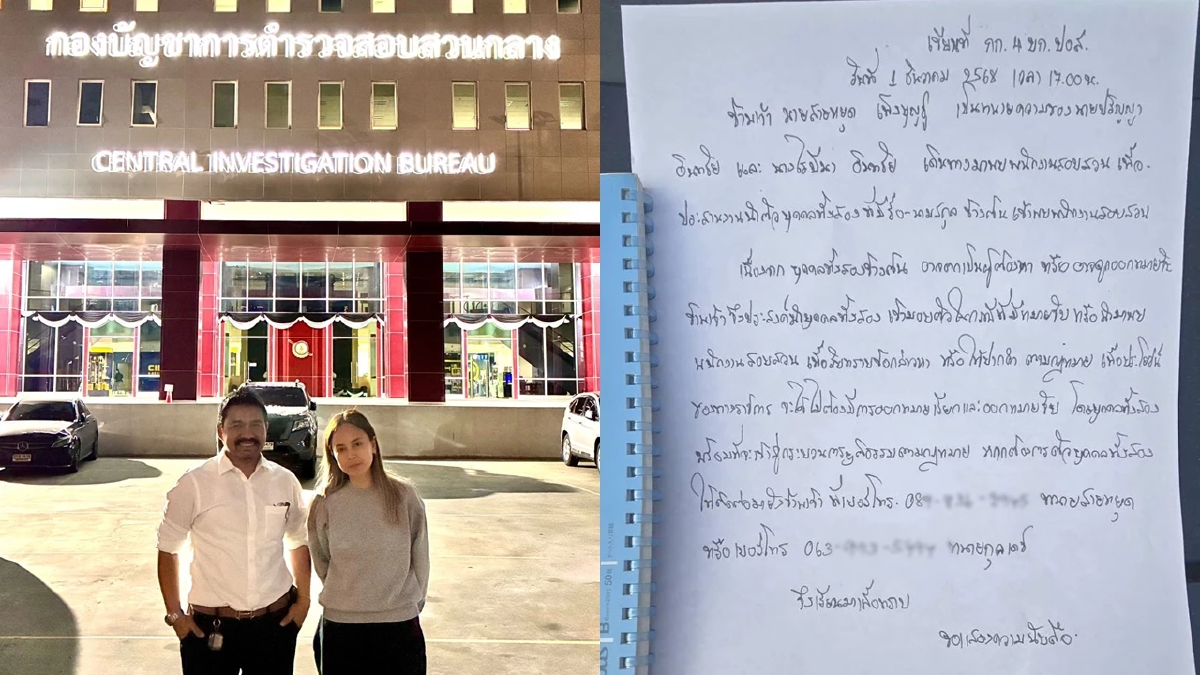 กองบัญชาการตำรวจสอบสวนกลาง
CENTRAL INVESTIGATION BUREAU
เขียนที่ กก. 4 บก. ปอศ.
วันที่ 1 ธันวาคม 2568 เวลา 17.00 น.
ข้าพเจ้า นายสายหยุด เพ็งบุญชู เป็นทนายความของ นายปริญญา
และ นาง เดินทางมาพบพนักงานสอบสวน เพื่อ
ประสานงานนำตัว บุคคลทั้งสอง ที่มีชื่อ-นามสกุล ข้างต้น เข้าพบพนักงานสอบสวน
เนื่องจาก บุคคลทั้งสองข้างต้น อาจตกเป็นผู้ต้องหา หรือ อาจถูกออกหมายจับ
ข้าพเจ้า จึงประสงค์นำบุคคลทั้งสอง เข้ามอบตัวในกรณีที่มีหมายจับ หรือนำมาพบ
พนักงานสอบสวน เพื่อรับทราบข้อกล่าวหา หรือ ให้ปากคำ ตามกฎหมาย เพื่อประโยชน์
ของทางราชการ จะได้ไม่ต้องมีการออกหมายเรียกและออกหมายจับ โดยบุคคลทั้งสอง
พร้อมที่จะเข้าสู่กระบวนการยุติธรรมตามกฎหมาย หากต้องการตัวบุคคลทั้งสอง
ให้ติดต่อมายังข้าพเจ้า ที่เบอร์โทร. 089 ทนายสายหยุด
หรือ เบอร์โทร 063 ทนายกุลเดช
จึงเรียนมาเพื่อทราบ
ขอแสดงความนับถือ